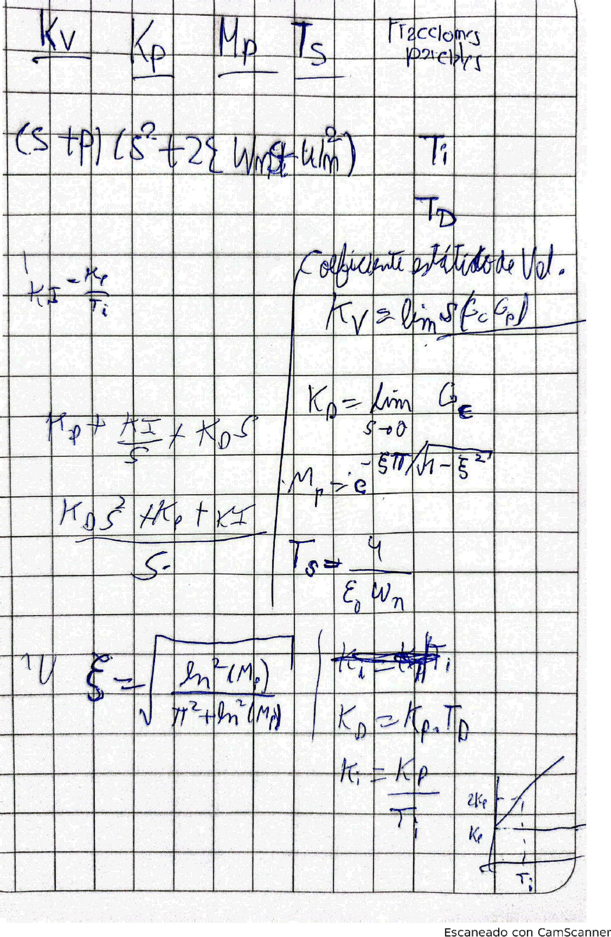 Kv Kp Mp Ts Fracciones parciales
(S+P)(S²+2ξWnS+Wn²) Ti
TD
KI = Kp/Ti
Coeficiente estático de Vel.
Kv = lim S(Gc Gp)
Kp + KI/S + KD S
KD S² + Kp + KI
S
Kp = lim S→0 G
Mp = e^(-ξπ/√1-ξ²)
Ts = 4/(ξ Wn)
ξ = √(ln²(Mp)/(π²+ln²(Mp)))
KD = Kp . TD
Ki = Kp/Ti
2Kp
Kp
Ti
Escaneado con CamScanner